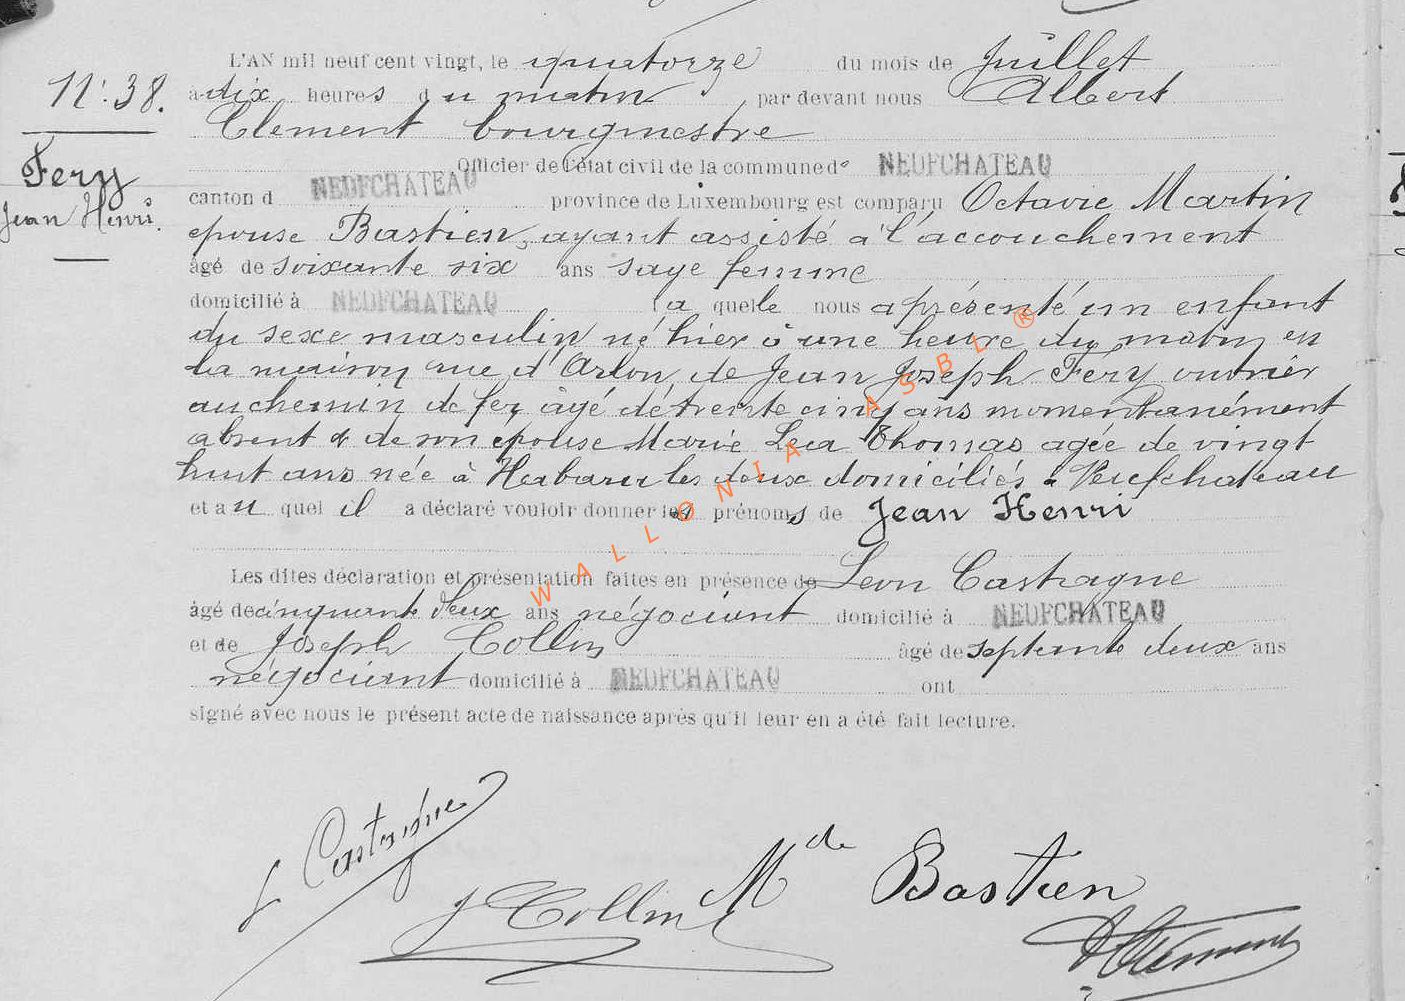 L'AN mil neuf cent vingt, le quatorze du mois de Juillet
11:38. à dix heures du matin par devant nous Albert
Clement bourgmestre
Fery
Jean Henri.
Officier de l'état civil de la commune de NEUFCHATEAU
canton d NEUFCHATEAU province de Luxembourg est comparu Octavie Martin
epouse Bastien, ayant assisté à l'accouchement
âgé de soixante six ans sage femme
domicilié à NEUFCHATEAU la quelle nous a présenté un enfant
du sexe masculin né hier à une heure du matin en
la maison rue d'Arlon, de Jean Joseph Fery ouvrier
au chemin de fer âgé de trente cinq ans momentanément
absent & de son epouse Marie Lea Thomas agée de vingt
huit ans née à Habaru les deux domiciliés à Neufchateau
et au quel il a déclaré vouloir donner les prénoms de Jean Henri
Les dites déclaration et présentation faites en présence de Leon Castagne
âgé de cinquante deux ans négociant domicilié à NEUFCHATEAU
et de Joseph Collin âgé de septante deux ans
négociant domicilié à NEUFCHATEAU ont
signé avec nous le présent acte de naissance après qu'il leur en a été fait lecture.
L Castagne
J Collin
Mde Bastien
AClement
WALLONIA ASBL ®